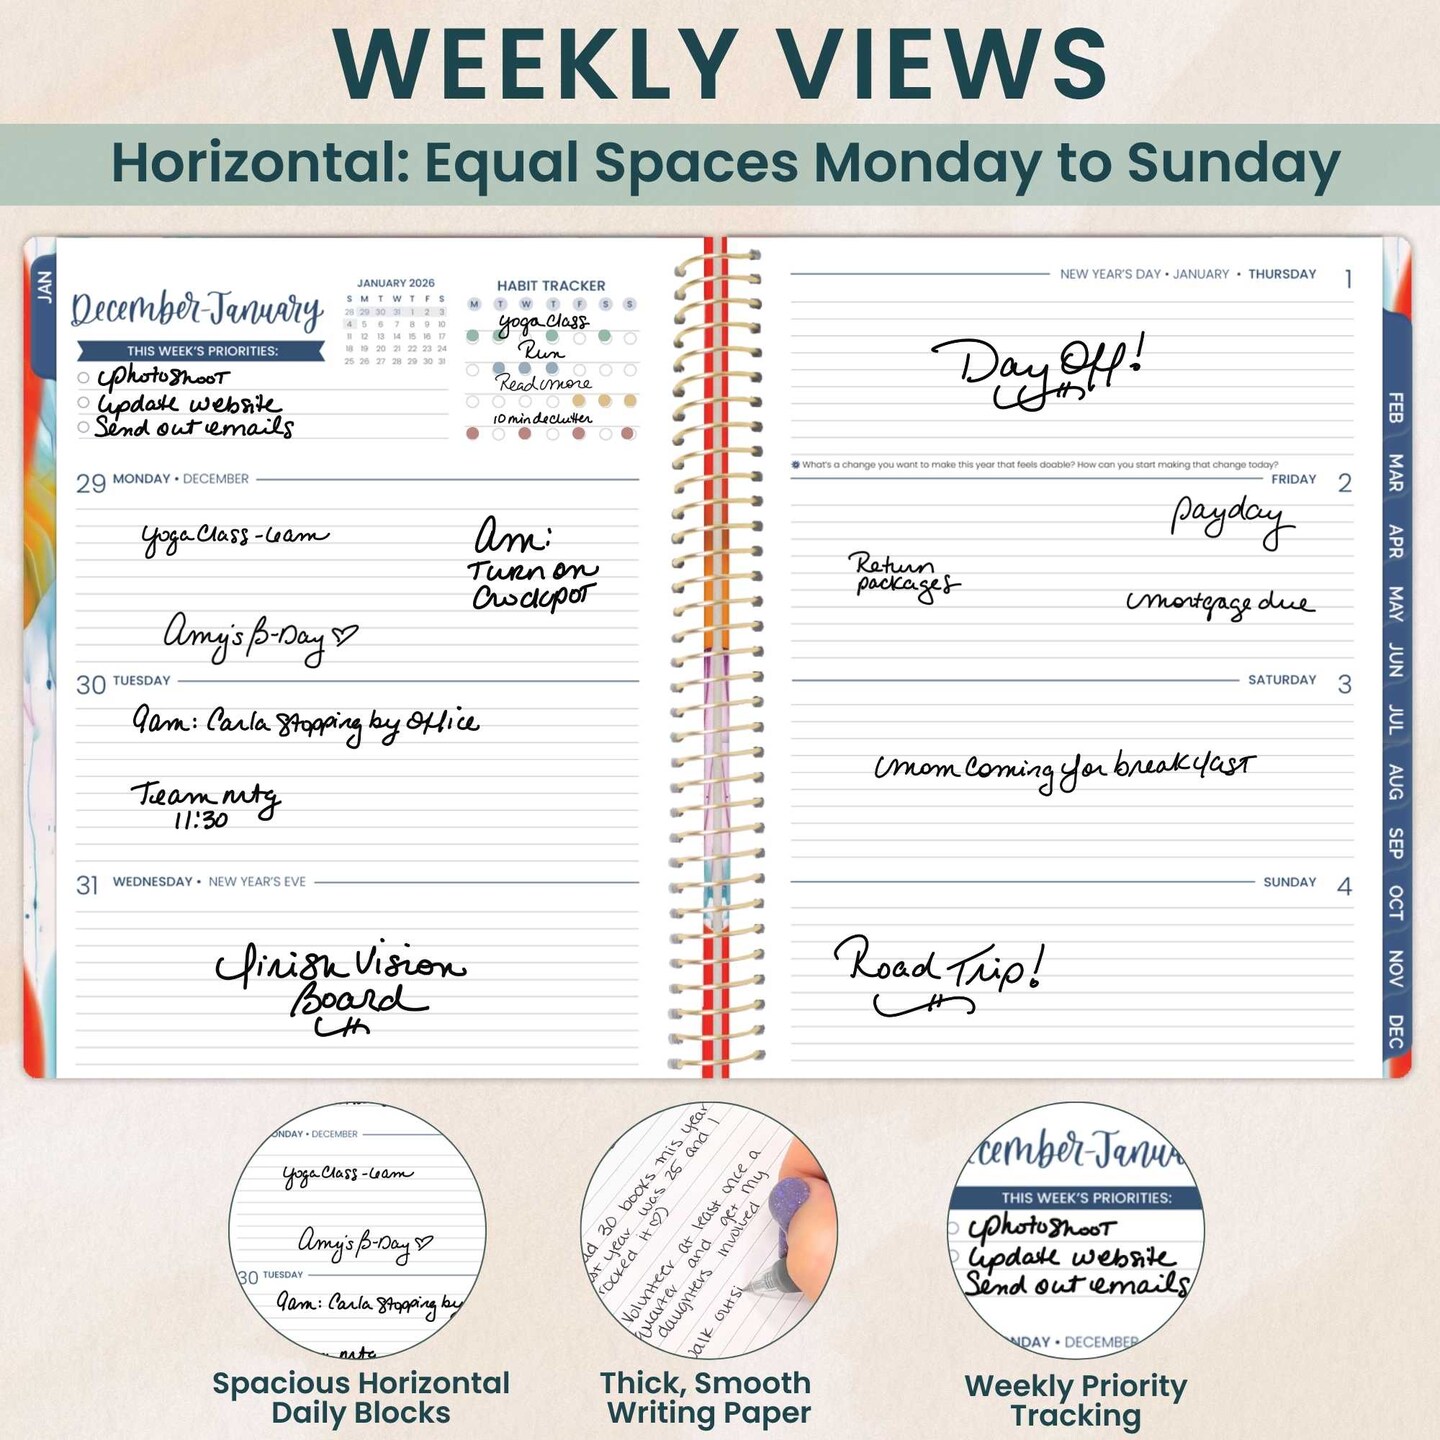 WEEKLY VIEWS
Horizontal: Equal Spaces Monday to Sunday
JAN
December-January
THIS WEEK'S PRIORITIES:
Photoshoot
update website
Send out emails
JANUARY 2026
S M T W T F S
28 29 30 31 1 2 3
4 5 6 7 8 9 10
11 12 13 14 15 16 17
18 19 20 21 22 23 24
25 26 27 28 29 30 31
HABIT TRACKER
M T W T F S S
yoga Class
Run
Read more
10 min declutter
29 MONDAY • DECEMBER
yoga Class - 6am
Am:
Turn on
Crockpot
Amy's B-Day ♡
30 TUESDAY
9am: Carla stopping by office
Team mtg
11:30
31 WEDNESDAY • NEW YEAR'S EVE
finish Vision
Board
NEW YEAR'S DAY • JANUARY • THURSDAY 1
Day Off!
What's a change you want to make this year that feels doable? How can you start making that change today?
FRIDAY 2
payday
Return
packages
mortgage due
SATURDAY 3
mom coming for breakfast
SUNDAY 4
Road Trip!
FEB
MAR
APR
MAY
JUN
JUL
AUG
SEP
OCT
NOV
DEC
ONDAY • DECEMBER
yoga Class - 6am
Amy's B-Day ♡
30 TUESDAY
9am: Carla stopping by
mtg
Spacious Horizontal
Daily Blocks
ad 30 books this year
year was 25 and I
rocked it ♡)
Volunteer at least once a
quarter and get my
daughters involved
walk outsi
Thick, Smooth
Writing Paper
cember-Janua
THIS WEEK'S PRIORITIES:
Photoshoot
update website
Send out emails
NDAY • DECEMBER
Weekly Priority
Tracking